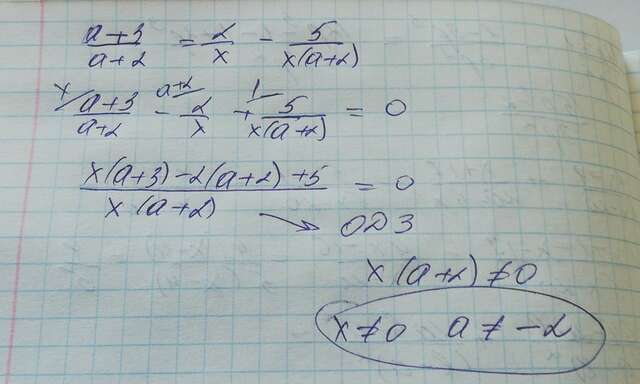 a+3/a+2 = 2/x - 5/x(a+2)
x/ a+3/a+2 - a+2/ 2/x + 1/ 5/x(a+2) = 0
x(a+3)-2(a+2)+5/x(a+2) = 0
→ ОДЗ
x(a+2)≠0
x≠0 a≠-2